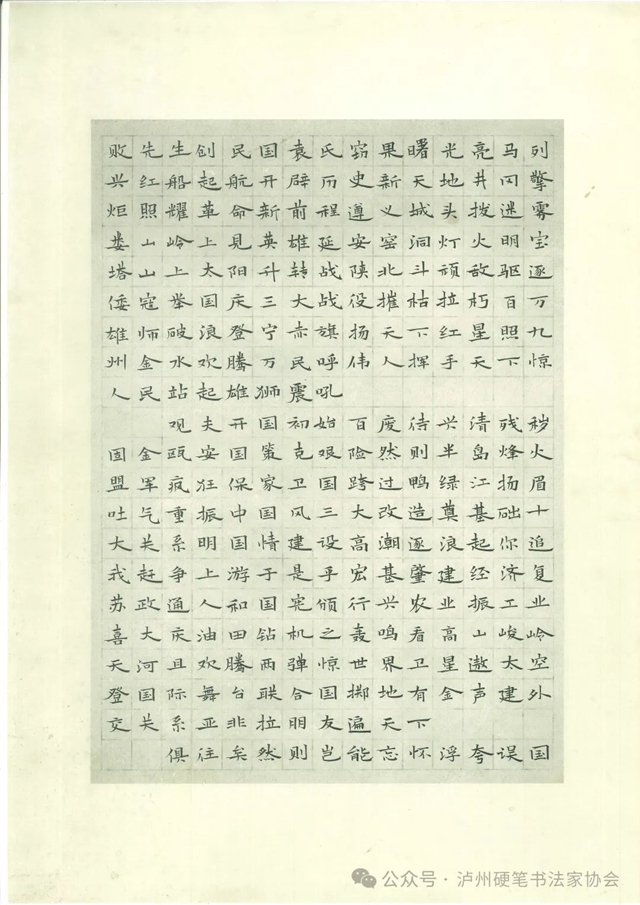 败先生创民国袁氏窃果曙光亮马列
兴红船起航开辟历史新天地井冈擎
炬照耀革命新前程遵义城头拨迷雾
娄山岭上见英雄延安窑洞灯火明宝
塔山上太阳升转战陕北斗顽敌驱逐
倭寇举国庆三大战役摧枯拉朽百万
雄师破浪登宁赤旗扬天下红星照九
州金水欢腾万民呼伟人挥手天下惊
人民站起雄狮震吼
观夫开国初始百废待兴清残秽
固金瓯安国策克艰险然则半岛烽火
盟军疯狂保家卫国跨过鸭绿江扬眉
吐气重振中国风三大改造奠基础十
大关系明国情建设高潮逐浪起你追
我赶争上游于是乎宏基肇建经济复
苏政通人和国宪颁行兴农业振工业
喜大庆油田钻机之轰鸣看高山峻岭
天河且欢腾两弹惊世界卫星遨太空
登国际舞台联合国掷地有金声建外
交关系亚非拉明友遍天下
俱往矣然则岂能忘怀浮夸误国